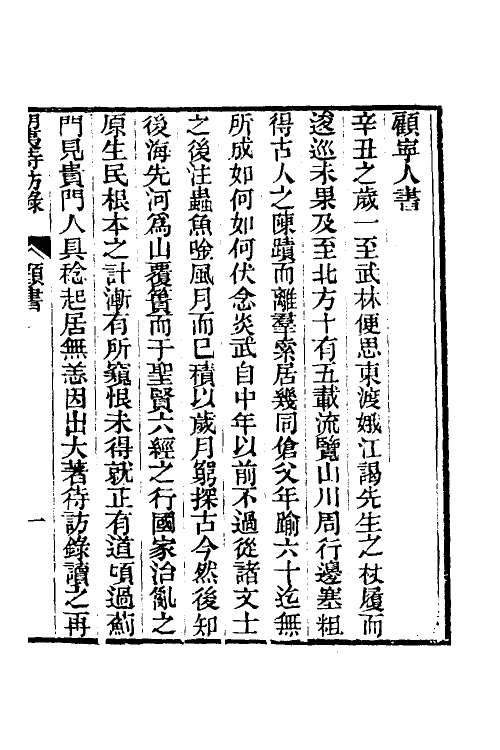 顧寧人書
辛丑之歲一至武林便思東渡娥江謁先生之杖履而
逡巡未果及至北方十有五載流覽山川周行邊塞粗
得古人之陳蹟而離羣索居幾同傖父年踰六十迄無
所成如何如何伏念炎武自中年以前不過從諸文士
之後注蟲魚唫風月而已積以歲月窮探古今然後知
後海先河爲山覆簣而于聖賢六經之行國家治亂之
原生民根本之計漸有所窺恨未得就正有道頃過薊
門見貴門人具稔起居無恙因出大著待訪錄讀之再
明夷待訪錄
顧書
一